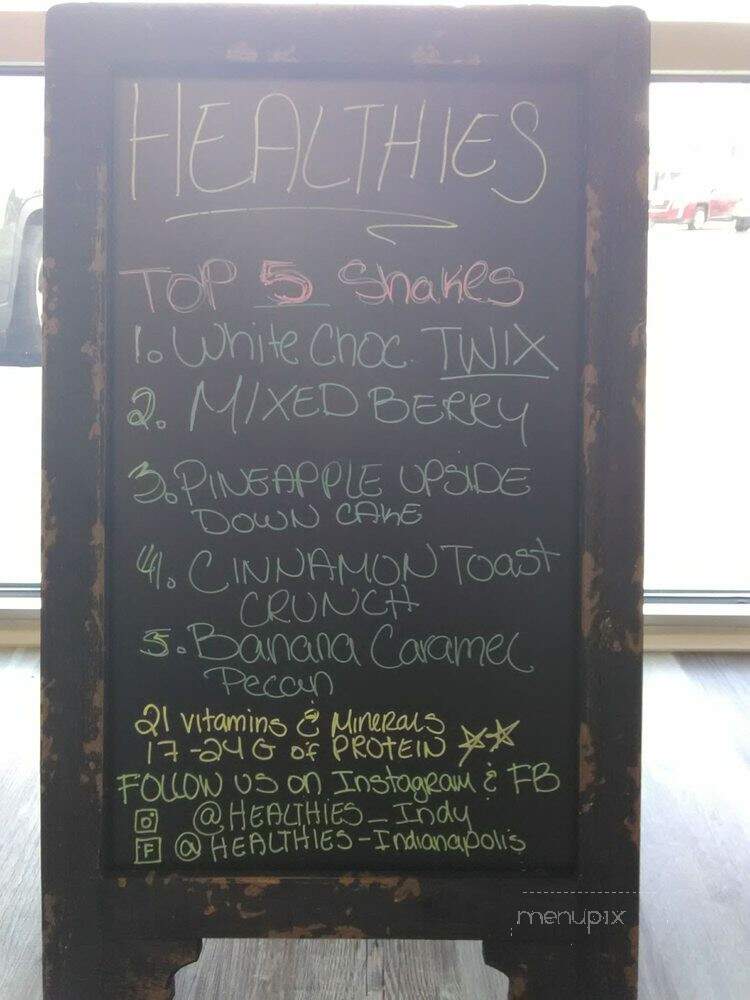 HEALTHIES
TOP 5 Shakes
1. White Choc. TWIX
2. MIXED BERRY
3. PINEAPPLE UPSIDE
DOWN CAKE
4. CINNAMON Toast
CRUNCH
5. Banana Caramel
Pecan
21 Vitamins & Minerals
17-24G of PROTEIN
FOLLOW US on Instagram & FB
@HEALTHIES_Indy
F @HEALTHIES-Indianapolis
menupix